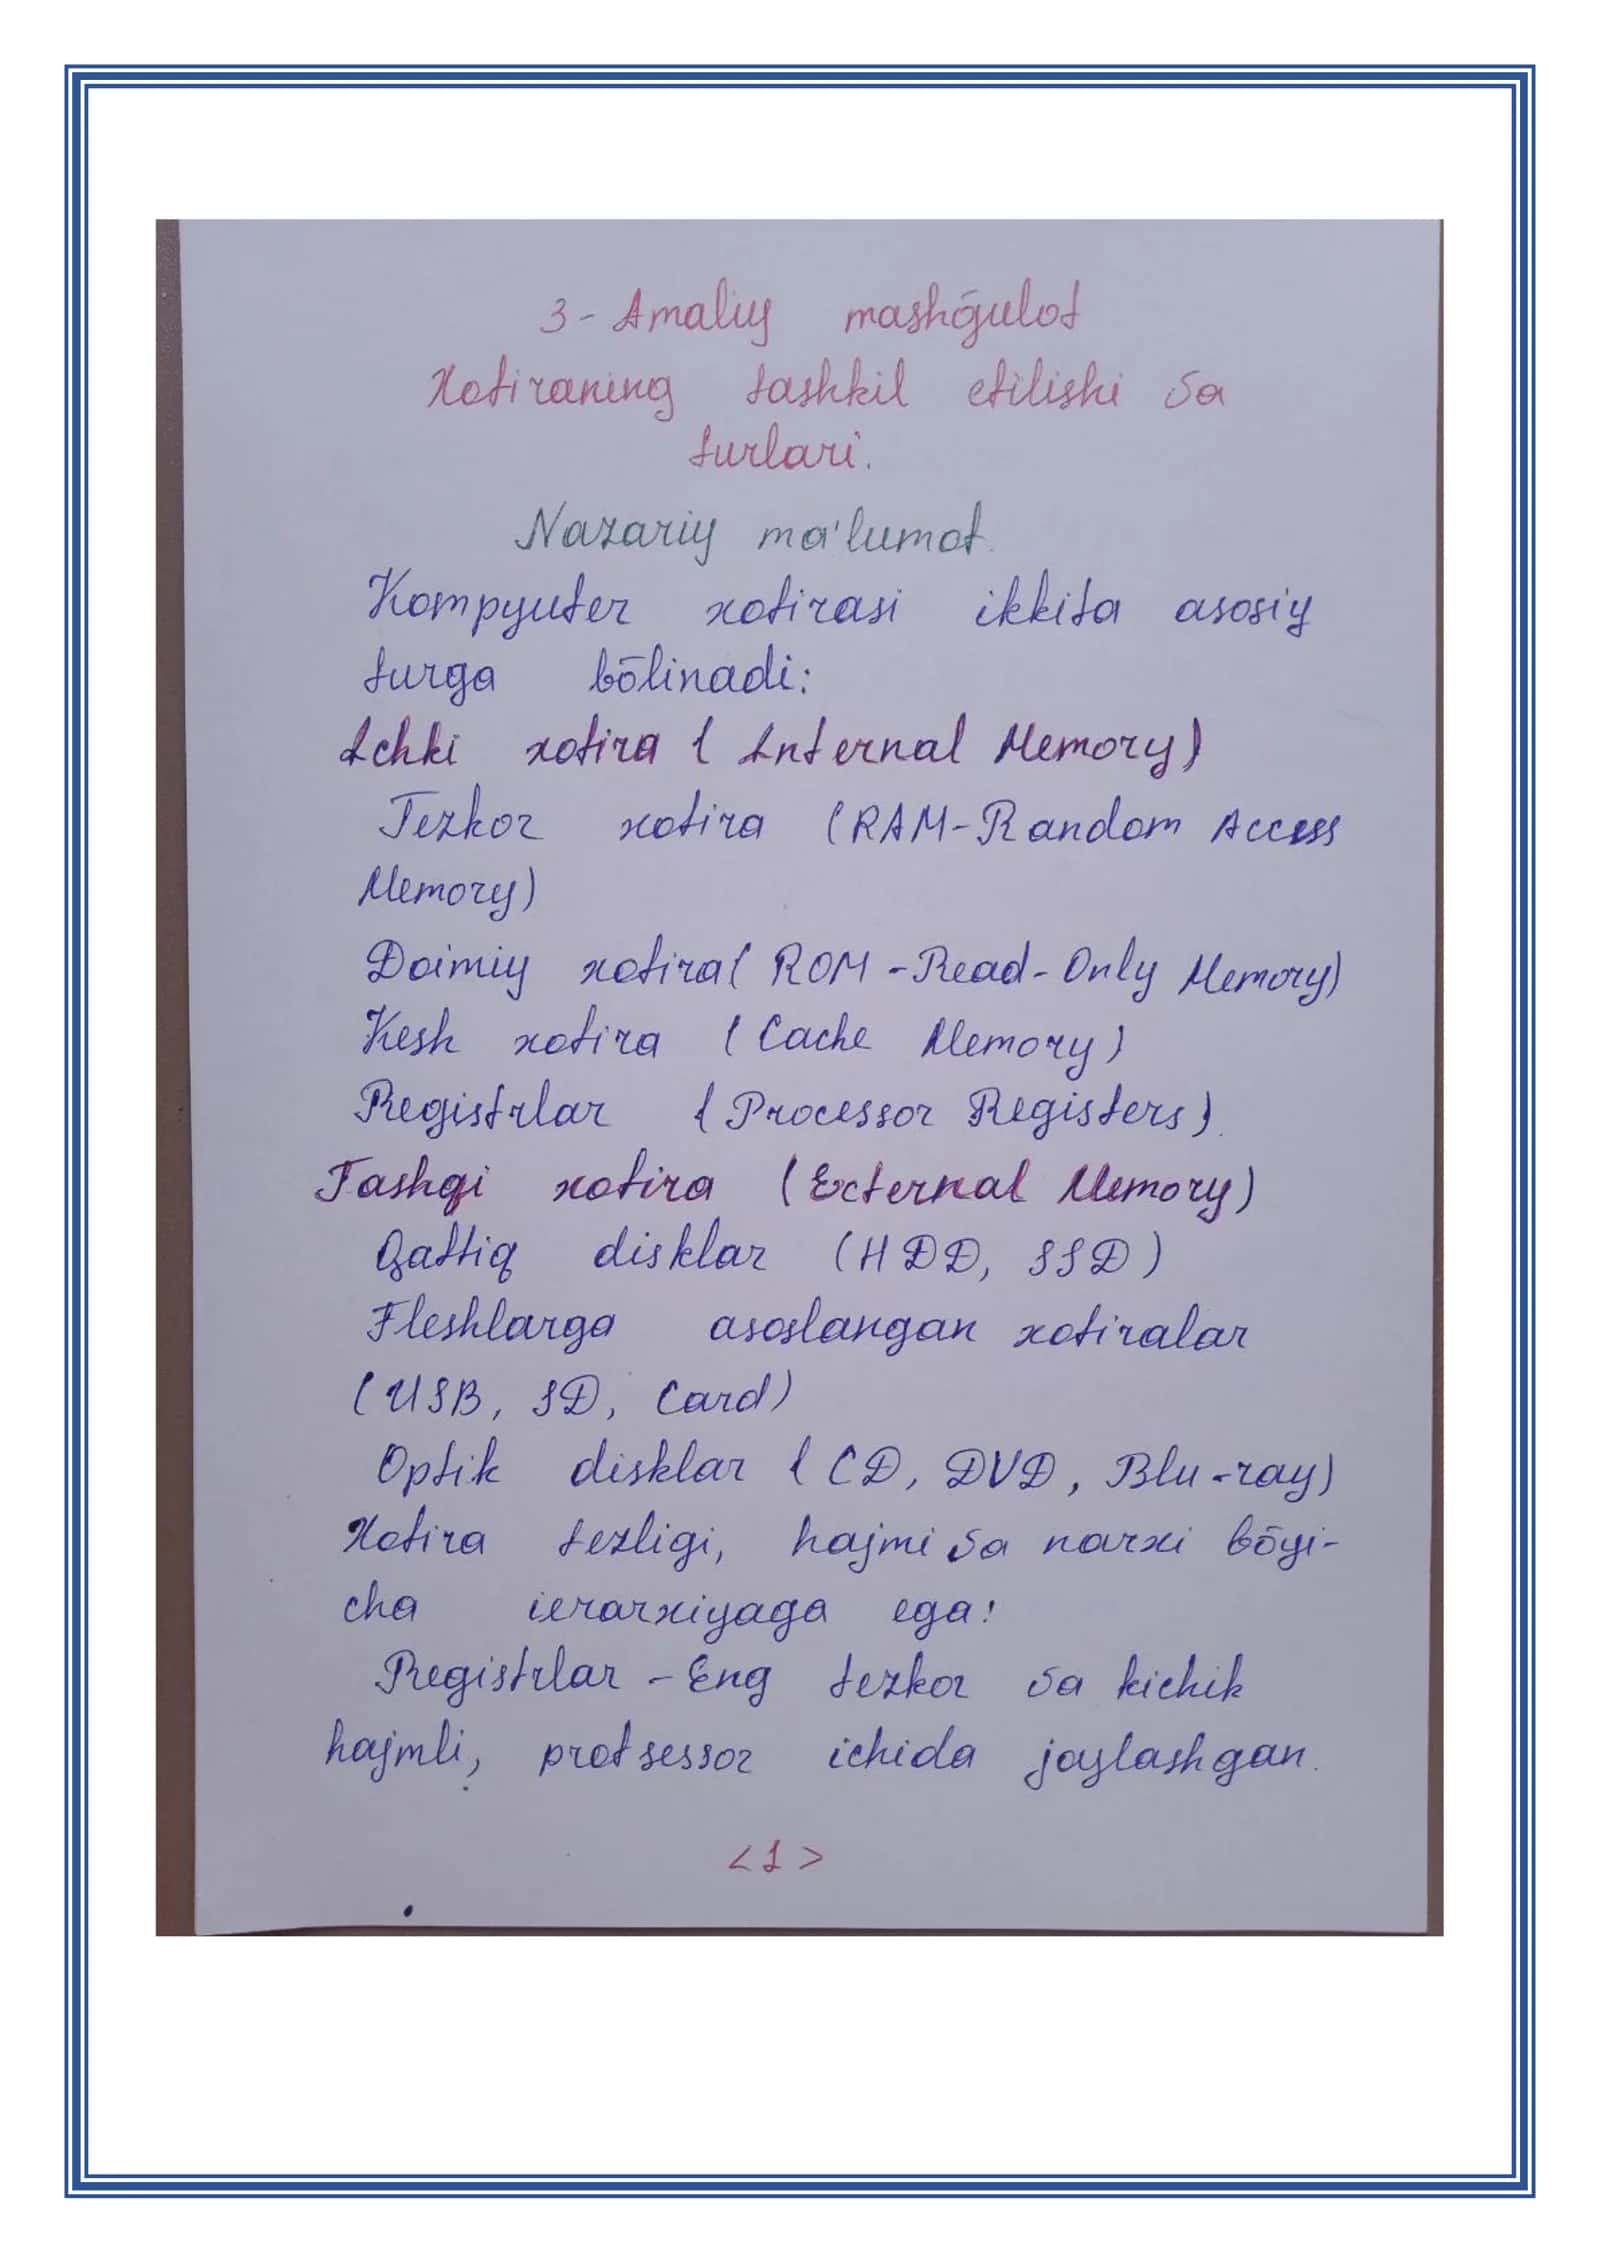 3-Amaliy mashḡulot
Xotiraning tashkil etilishi va
turlari.
Nazariy ma'lumot.
Kompyuter xotirasi ikkita asosiy
turga bōlinadi:
Ichki xotira (Internal Memory)
Tezkor xotira (RAM-Random Access
Memory)
Doimiy xotira (ROM-Read-Only Memory)
Kesh xotira (Cache Memory)
Registrlar (Processor Registers).
Tashqi xotira (External Memory)
Qattiq disklar (HDD, SSD)
Fleshlarga asoslangan xotiralar
(USB, SD, Card)
Optik disklar (CD, DVD, Blu-ray)
Xotira tezligi, hajmi va narxi bōyi-
cha ierarxiyaga ega:
Registrlar - Eng tezkor va kichik
hajmli, protsessor ichida joylashgan.
<1>